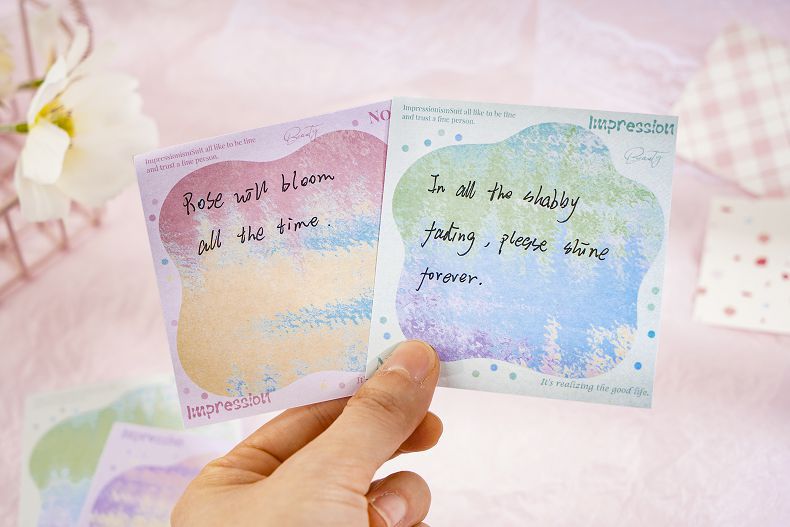 ImpressionismSuit all like to be fine
and trust a fine person.
Beauty
No
Rose will bloom
all the time.
Impression
ImpressionismSuit all like to be fine
and trust a fine person.
Impression
Beauty
In all the shabby
fading, please shine
forever.
It's realizing the good life.